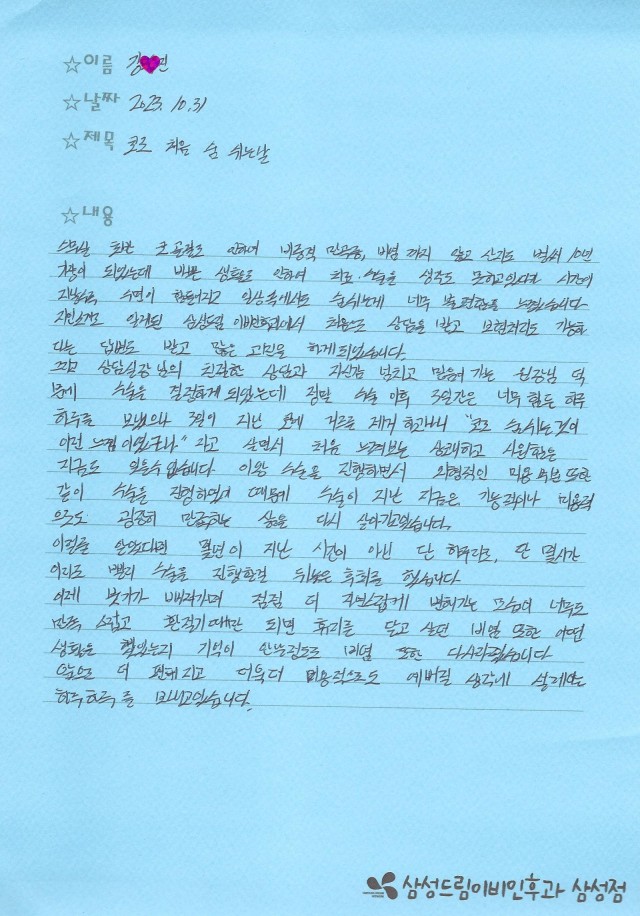 ☆이름 김♥민
☆날짜 2023. 10. 31
☆제목 코로 처음 숨 쉬는날
☆내용
휜코 인하여 비중격 만곡증, 비염 까지 앓고 산지도 벌써 10년
차가 되었는데 바쁜 생활로 인하여 치료, 수술을 생각도 못하고있다가 시간이
지날수록 수면이 힘들어지고 일상속에서도 숨쉬는게 너무 불편함을 느꼈습니다
지인소개로 알게된 삼성드림 이비인후과에서 처음으로 상담을 받고 보험처리도 가능하
다는 답변도 받고 많은 고민을 하게되었습니다.
그리고 상담실장님의 친절한 상담과 자신감 넘치고 믿음이 가는 원장님 덕
분에 수술을 결정하게 되었는데 정말 수술 이후 3일간은 너무 힘든 하루
하루를 보냈으나 3일이 지난 후에 거즈를 제거 하고나니 "코로 숨쉬는것이
이런 느낌이었구나" 라고 살면서 처음 느껴보는 상쾌하고 시원함은
지금도 잊을수 없습니다 이왕 수술을 진행하면서 외형적인 미용 부분 또한
같이 수술을 진행하였기 때문에 수술이 지난 지금은 기능적이나 미용적
으로도 굉장히 만족하는 삶을 다시 살아가고있습니다.
이럴줄 알았다면 몇년이 지난 시간이 아닌 단 하루라도, 단 몇시간
이라도 빨리 수술을 진행할걸 뒤늦은 후회를 했습니다
이제 붓기가 빠져가며 점점 더 자연스럽게 변해가는 모습이 너무도
만족 스럽고 환절기때만 되면 휴지를 달고 살던 비염 또한 어떤
생활을 했었는지 기억이 안날정도로 비염 또한 다사라졌습니다
앞으로 더 편해지고 더욱더 미용적으로도 예뻐질 생각에 설레이는
하루하루를 보내고있습니다.
삼성드림이비인후과 삼성점